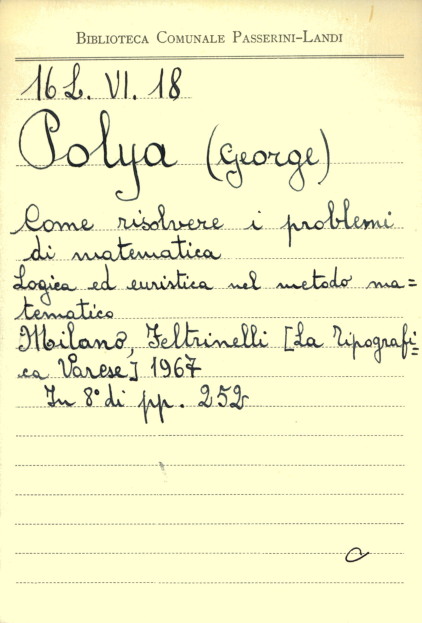 BIBLIOTECA COMUNALE PASSERINI-LANDI
16 L. VI. 18
Polya (George)
Come risolvere i problemi
di matematica
Logica ed euristica nel metodo ma=
tematico
Milano, Feltrinelli [La Tipografi=
ca Varese] 1967
In 8° di pp. 252